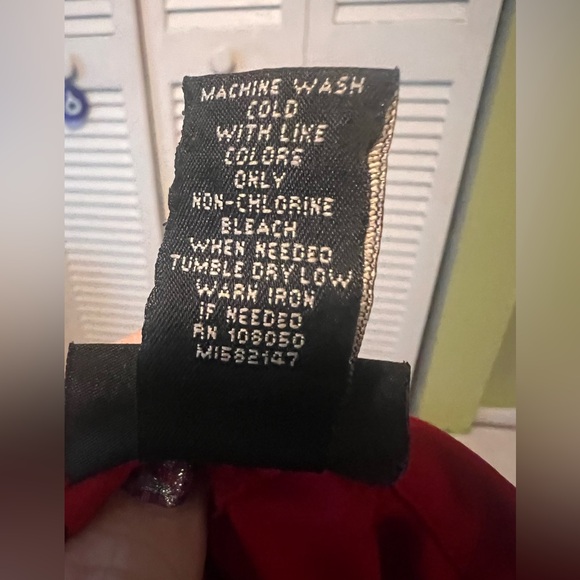 MACHINE WASH
COLD
WITH LIKE
COLORS
ONLY
NON-CHLORINE
BLEACH
WHEN NEEDED
TUMBLE DRY LOW
WARM IRON
IF NEEDED
RN 108050
MI582147